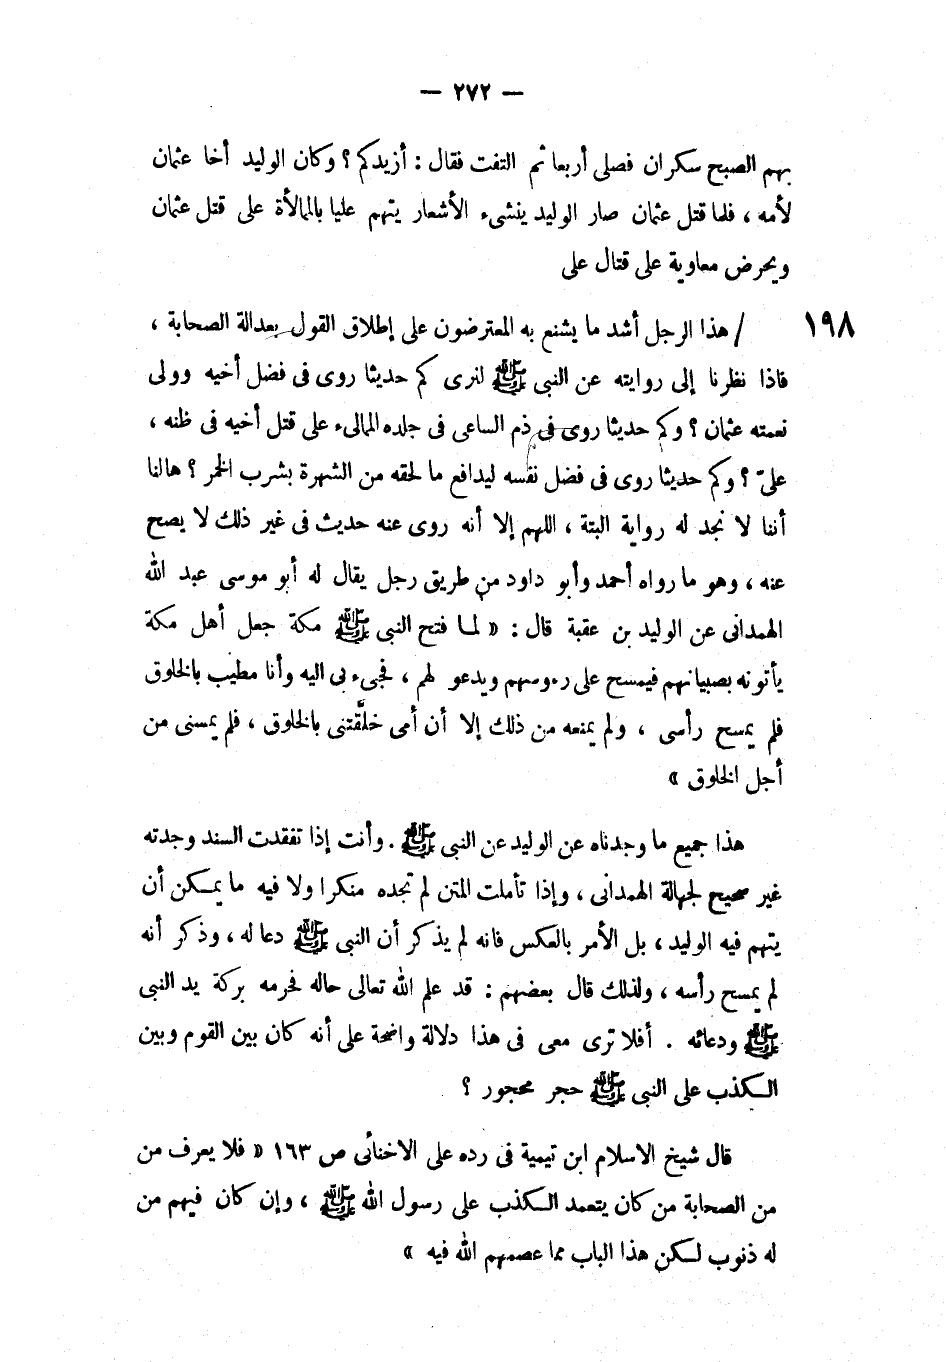 — ٢٧٢ —
بهم الصبح سكران فصلى أربعا ثم التفت فقال : أزيدكم ؟ وكان الوليد أخا عثمان
لأمه ، فلما قتل عثمان صار الوليد ينشىء الأشعار يتهم عليا بالممالأة على قتل عثمان
ويحرض معاوية على قتال على
١٩٨ / هذا الرجل أشد ما يشنع به المعترضون على إطلاق القول بعدالة الصحابة ،
فاذا نظرنا إلى روايته عن النبى ﷺ لنرى كم حديثا روى فى فضل أخيه وولى
نعمته عثمان ؟ وكم حديثا روى فى ذم الساعى فى جلده الممالىء على قتل أخيه فى ظنه ،
علىّ ؟ وكم حديثا روى فى فضل نفسه ليدافع ما لحقه من الشهرة بشرب الخمر ؟ هالنا
أننا لا نجد له رواية البتة ، اللهم إلا أنه روى عنه حديث فى غير ذلك لا يصح
عنه ، وهو ما رواه أحمد وأبو داود من طريق رجل يقال له أبو موسى عبد الله
الهمدانى عن الوليد بن عقبة قال : « لمــا فتح النبى ﷺ مكة جعل أهل مكة
يأتونه بصبيانهم فيمسح على رءوسهم ويدعو لهم ، فجىء بى اليه وأنا مطيب بالخلوق
فلم يمسح رأسى ، ولم يمنعه من ذلك إلا أن أمى خلَّقتنى بالخلوق ، فلم يمسنى من
أجل الخلوق »
هذا جميع ما وجدناه عن الوليد عن النبى ﷺ . وأنت إذا تفقدت السند وجدته
غير صحيح لجهالة الهمدانى ، وإذا تأملت المتن لم تجده منكرا ولا فيه ما يمــكن أن
يتهم فيه الوليد ، بل الأمر بالعكس فانه لم يذكر أن النبى ﷺ دعا له ، وذكر أنه
لم يمسح رأسه ، ولذلك قال بعضهم : قد علم الله تعالى حاله فحرمه بركة يد النبى
ﷺ ودعائه . أفلا ترى معى فى هذا دلالة واضحة على أنه كان بين القوم وبين
الــكذب على النبى ﷺ حجر محجور ؟
قال شيخ الاسلام ابن تيمية فى رده على الاخنائى ص ١٦٣ « فلا يعرف من
من الصحابة من كان يتعمد الــكذب على رسول الله ﷺ ، وإن كان فيهم من
له ذنوب لــكن هذا الباب مما عصمهم الله فيه »